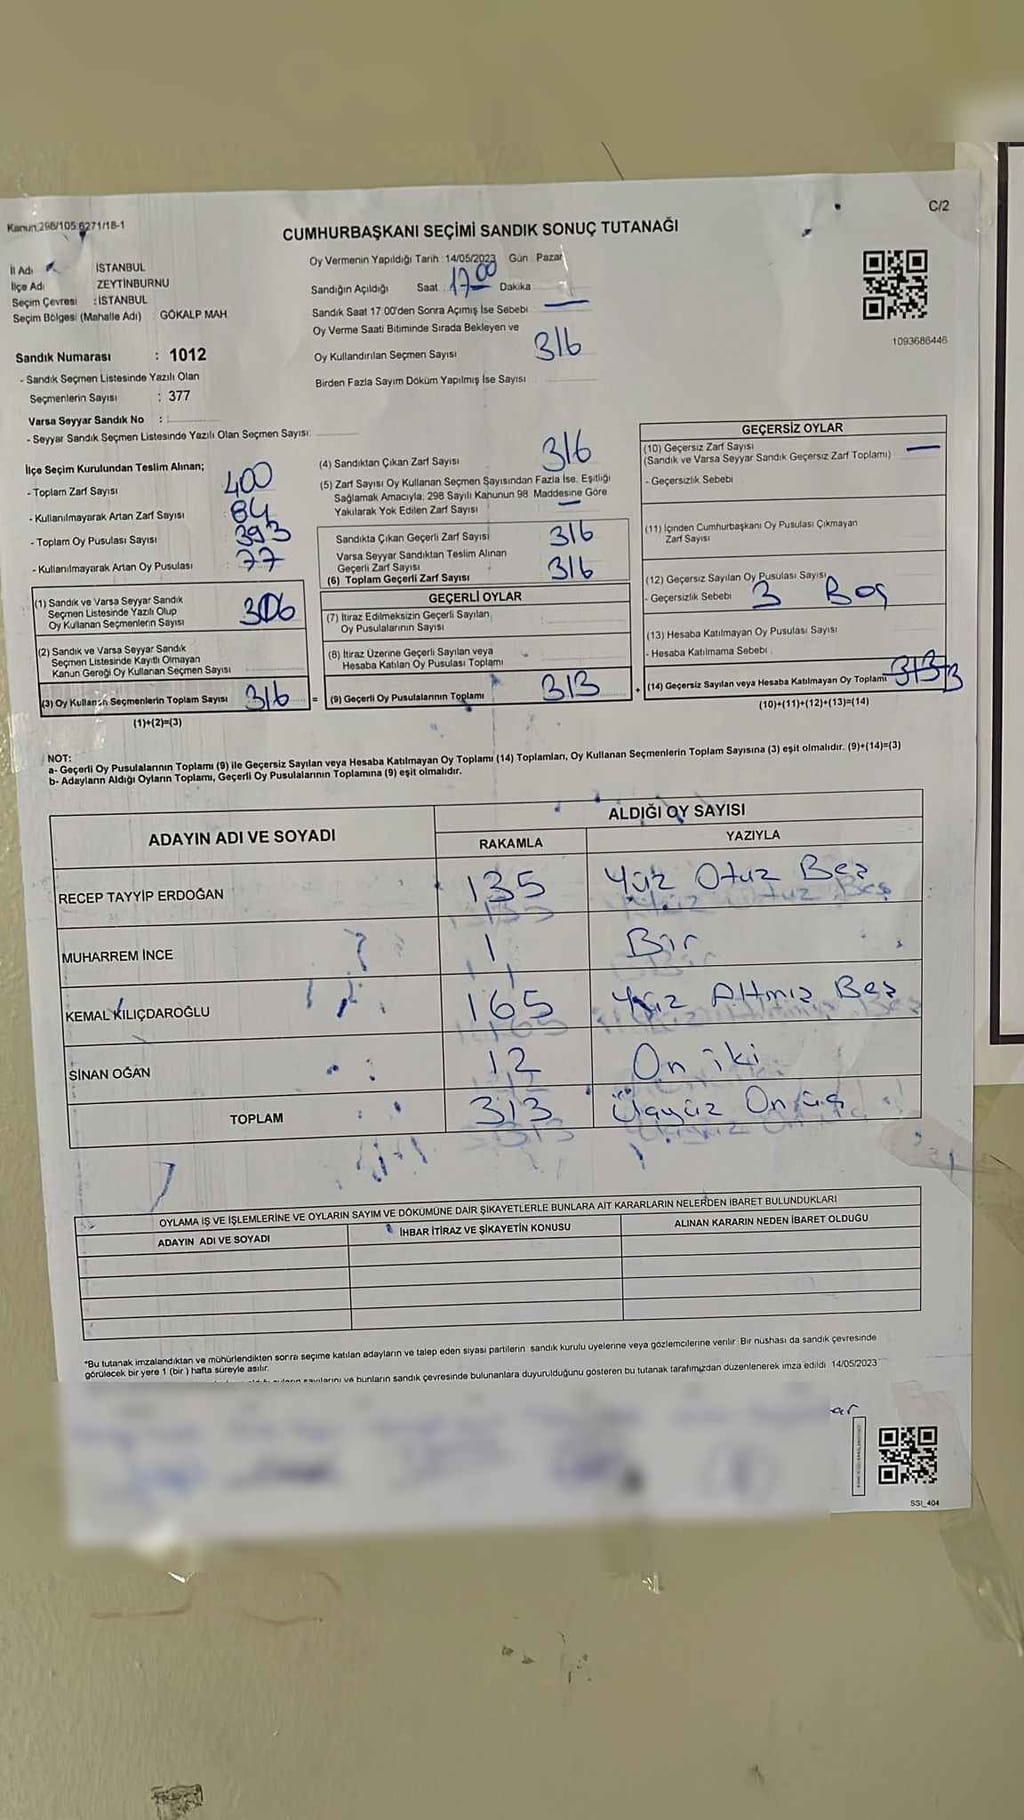 Kanun:298/105.6271/18-1
C/2
CUMHURBAŞKANI SEÇİMİ SANDIK SONUÇ TUTANAĞI
İl Adı İSTANBUL
İlçe Adı ZEYTİNBURNU
Seçim Çevresi : İSTANBUL
Seçim Bölgesi (Mahalle Adı) : GÖKALP MAH
Sandık Numarası : 1012
- Sandık Seçmen Listesinde Yazılı Olan
Seçmenlerin Sayısı : 377
Varsa Seyyar Sandık No :
- Seyyar Sandık Seçmen Listesinde Yazılı Olan Seçmen Sayısı:
Oy Vermenin Yapıldığı Tarih :14/05/2023 Gün Pazar
Sandığın Açıldığı Saat : 17.00 Dakika
Sandık Saat 17 00'den Sonra Açımış İse Sebebi —
Oy Verme Saati Bitiminde Sırada Bekleyen ve
Oy Kullandırılan Seçmen Sayısı 316
Birden Fazla Sayım Döküm Yapılmış İse Sayısı
1093686446
İlçe Seçim Kurulundan Teslim Alınan;
- Toplam Zarf Sayısı 400
- Kullanılmayarak Artan Zarf Sayısı 84
- Toplam Oy Pusulası Sayısı 393
- Kullanılmayarak Artan Oy Pusulası 77
(1) Sandık ve Varsa Seyyar Sandık
Seçmen Listesinde Yazılı Olup
Oy Kullanan Seçmenlerin Sayısı
(2) Sandık ve Varsa Seyyar Sandık
Seçmen Listesinde Kayıtlı Olmayan
Kanun Gereği Oy Kullanan Seçmen Sayısı
(3) Oy Kullanan Seçmenlerin Toplam Sayısı 316 =
(1)+(2)=(3)
(4) Sandıktan Çıkan Zarf Sayısı 316
(5) Zarf Sayısı Oy Kullanan Seçmen Sayısından Fazla İse, Eşitliği
Sağlamak Amacıyla, 298 Sayılı Kanunun 98 Maddesine Göre
Yakılarak Yok Edilen Zarf Sayısı —
Sandıkta Çıkan Geçerli Zarf Sayısı 316
Varsa Seyyar Sandıktan Teslim Alınan
Geçerli Zarf Sayısı
(6) Toplam Geçerli Zarf Sayısı 316
GEÇERLİ OYLAR
(7) İtiraz Edilmeksizin Geçerli Sayılan
Oy Pusulalarının Sayısı
(8) İtiraz Üzerine Geçerli Sayılan veya
Hesaba Katılan Oy Pusulası Toplamı
(9) Geçerli Oy Pusulalarının Toplamı 313 +
GEÇERSİZ OYLAR
(10) Geçersiz Zarf Sayısı
(Sandık ve Varsa Seyyar Sandık Geçersiz Zarf Toplamı) —
- Geçersizlik Sebebi
(11) İçinden Cumhurbaşkanı Oy Pusulası Çıkmayan
Zarf Sayısı
(12) Geçersiz Sayılan Oy Pusulası Sayısı
- Geçersizlik Sebebi 3 Boş
(13) Hesaba Katılmayan Oy Pusulası Sayısı
- Hesaba Katılmama Sebebi
(14) Geçersiz Sayılan veya Hesaba Katılmayan Oy Toplamı 313 3
(10)+(11)+(12)+(13)=(14)
NOT:
a- Geçerli Oy Pusulalarının Toplamı (9) ile Geçersiz Sayılan veya Hesaba Katılmayan Oy Toplamı (14) Toplamları, Oy Kullanan Seçmenlerin Toplam Sayısına (3) eşit olmalıdır. (9)+(14)=(3)
b- Adayların Aldığı Oyların Toplamı, Geçerli Oy Pusulalarının Toplamına (9) eşit olmalıdır.
ADAYIN ADI VE SOYADI
ALDIĞI OY SAYISI
RAKAMLA YAZIYLA
RECEP TAYYİP ERDOĞAN 135 Yüz Otuz Beş
MUHARREM İNCE 1 Bir
KEMAL KILIÇDAROĞLU 165 Yüz Altmış Beş
SİNAN OĞAN 12 On iki
TOPLAM 313 Üçyüz On üç
OYLAMA İŞ VE İŞLEMLERİNE VE OYLARIN SAYIM VE DÖKÜMÜNE DAİR ŞİKAYETLERLE BUNLARA AİT KARARLARIN NELERDEN İBARET BULUNDUKLARI
ADAYIN ADI VE SOYADI İHBAR İTİRAZ VE ŞİKAYETİN KONUSU ALINAN KARARIN NEDEN İBARET OLDUĞU
*Bu tutanak imzalandıktan ve mühürlendikten sonra seçime katılan adayların ve talep eden siyasi partilerin sandık kurulu üyelerine veya gözlemcilerine verilir. Bir nüshası da sandık çevresinde
görülecek bir yere 1 (bir) hafta süreyle asılır.
sayılarını ve bunların sandık çevresinde bulunanlara duyurulduğunu gösteren bu tutanak tarafımızdan düzenlenerek imza edildi. 14/05/2023
ar
SSİ_404